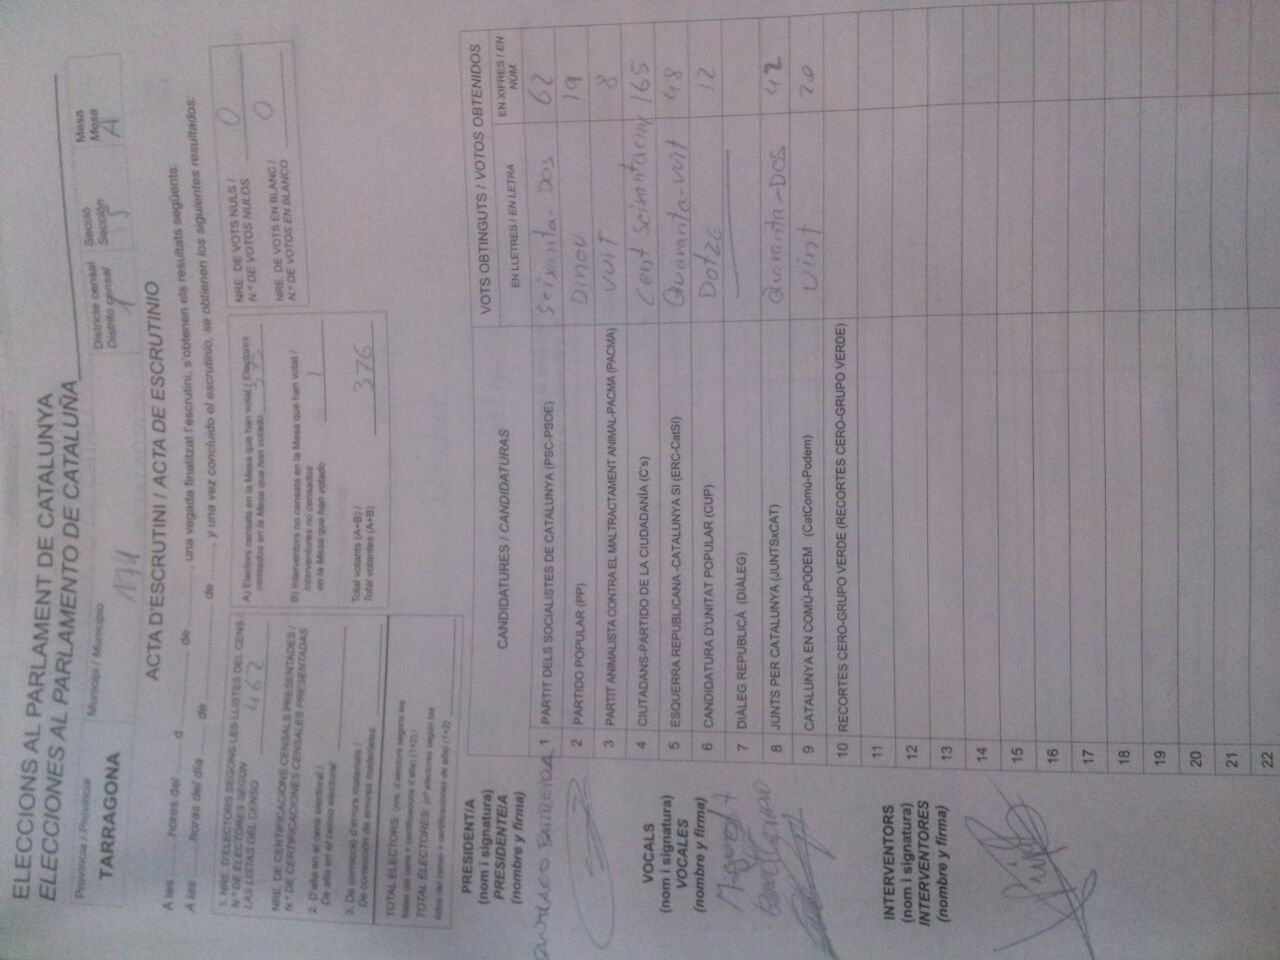 ELECCIONS AL PARLAMENT DE CATALUNYA
ELECCIONES AL PARLAMENTO DE CATALUÑA
Província / Provincia
TARRAGONA
Municipi / Municipio
171
Districte censal
Distrito censal
1
Secció
Sección
5
Mesa
Mesa
A
ACTA D'ESCRUTINI / ACTA DE ESCRUTINIO
A les hores del d de una vegada finalitzat l'escrutini, s'obtenen els resultats següents:
A las horas del día de de , y una vez concluido el escrutinio, se obtienen los siguientes resultados:
1. NRE. D'ELECTORS SEGONS LES LLISTES DEL CENS /
N.º DE ELECTORES SEGÚN
LAS LISTAS DEL CENSO 462
NRE. DE CERTIFICACIONS CENSALS PRESENTADES /
N.º DE CERTIFICACIONES CENSALES PRESENTADAS
2. D'alta en el cens electoral /
De alta en el censo electoral:
3. De correcció d'errors materials /
De corrección de errores materiales:
TOTAL ELECTORS: (nre. d'electors segons les
llistes del cens + certificacions d'alta) (1+2) /
TOTAL ELECTORES: (nº electores según las
listas del censo + certificaciones de alta) (1+2)
A) Electors censats en la Mesa que han votat / Electores
censados en la Mesa que han votado 375
B) Interventors no censats en la Mesa que han votat /
Interventores no censados
en la Mesa que han votado 1
Total votants (A+B) /
Total votantes (A+B) 376
NRE. DE VOTS NULS /
N.º DE VOTOS NULOS 0
NRE. DE VOTS EN BLANC /
N.º DE VOTOS EN BLANCO 0
PRESIDENT/A
(nom i signatura)
PRESIDENTE/A
(nombre y firma)
VOCALS
(nom i signatura)
VOCALES
(nombre y firma)
INTERVENTORS
(nom i signatura)
INTERVENTORES
(nombre y firma)
CANDIDATURES / CANDIDATURAS
VOTS OBTINGUTS / VOTOS OBTENIDOS
EN LLETRES / EN LETRA
EN XIFRES / EN NÚM.
1 PARTIT DELS SOCIALISTES DE CATALUNYA (PSC-PSOE) Seixanta-Dos 62
2 PARTIDO POPULAR (PP) Dinou 19
3 PARTIT ANIMALISTA CONTRA EL MALTRACTAMENT ANIMAL-PACMA (PACMA) vuit 8
4 CIUTADANS-PARTIDO DE LA CIUDADANÍA (C's) Cent 165
5 ESQUERRA REPUBLICANA -CATALUNYA SI (ERC-CatSí) Quaranta-vuit 48
6 CANDIDATURA D'UNITAT POPULAR (CUP) Dotze 12
7 DIÀLEG REPUBLICÀ (DIÀLEG)
8 JUNTS PER CATALUNYA (JUNTSxCAT) Quaranta-DOS 42
9 CATALUNYA EN COMÚ-PODEM (CatComú-Podem) Vint 20
10 RECORTES CERO-GRUPO VERDE (RECORTES CERO-GRUPO VERDE)
11
12
13
14
15
16
17
18
19
20
21
22